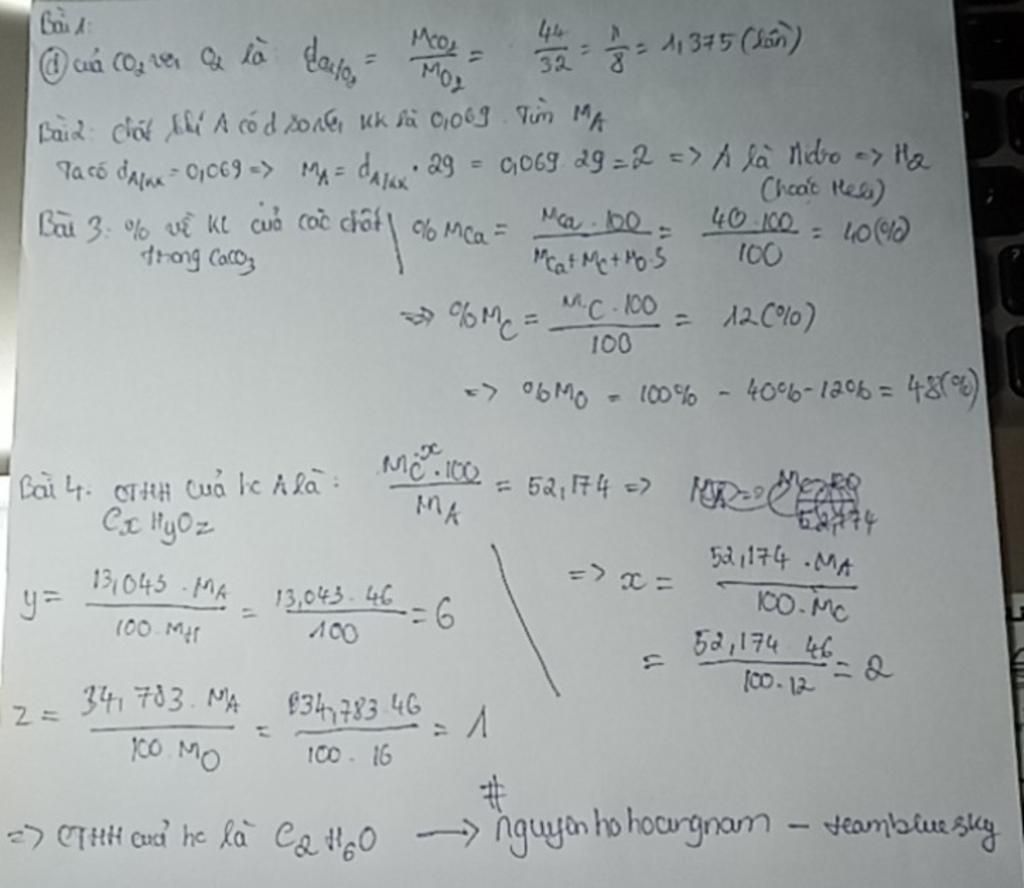 Bài 1:
(d) của CO2 với O2 là: dCO2/O2 = MCO2/MO2 = 44/32 = 11/8 = 1,375 (lần)
Bài 2: Chất khí A có d so với kk là 0,069. Tìm MA
Ta có dA/kk = 0,069 => MA = dA/kk . 29 = 0,069 . 29 = 2 => A là hidro => H2
Bài 3: % về KL của các chất trong CaCO3
%MCa = MCa . 100 / MCa + MC + MO.3 = 40 . 100 / 100 = 40(%)
=> %MC = MC . 100 / 100 = 12(%)
=> %MO = 100% - 40% - 12% = 48(%)
Bài 4. CTHH của hc A là: CxHyOz
MC.x . 100 / MA = 52,174 =>
=> x = 52,174 . MA / 100 . MC
= 52,174 . 46 / 100 . 12 = 2
y = 13,043 . MA / 100 . MH = 13,043 . 46 / 100 = 6
z = 34,783 . MA / 100 . MO = 34,783 . 46 / 100 . 16 = 1
#
=> CTHH của hc là C2H6O → nguyenhohoangnam - teambluesky